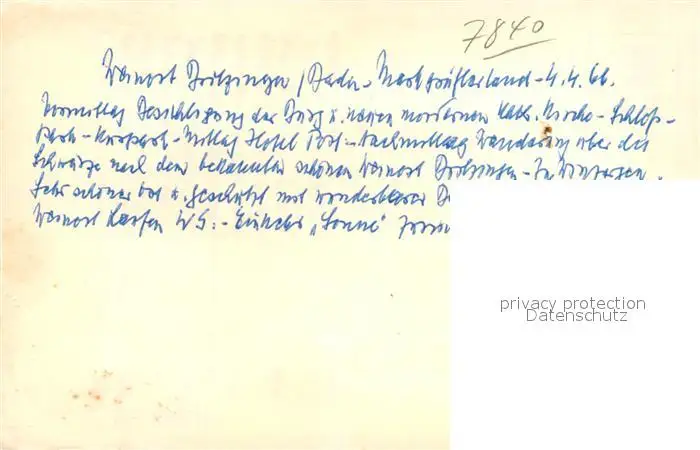 7840
Weinort Britzingen / Baden - Markgräflerland - 4.4.66.
Vormittag Besichtigung der Burg u. neuen modernen kath. Kirche - Schloß-
park - Kurpark - Mittag Hotel Post - Nachmittag Wanderung über die
Schwärze nach dem bekannten schönen Weinort Britzingen -
Sehr schöner Ort u. geschützt mit wunderbarer
Weinort Laufen WG. - Einkehr "Sonne"
privacy protection
Datenschutz